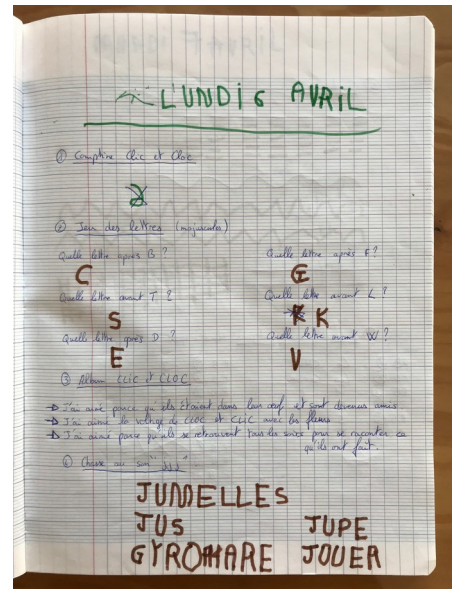 L'UNDi 6 AVRiL
① Comptine Clic et Cloc
② Jeu des lettres (majuscules)
Quelle lettre après B ?
Quelle lettre après F ?
C
G
Quelle lettre avant T ?
Quelle lettre avant L ?
S
K
Quelle lettre après D ?
Quelle lettre avant W ?
E
V
③ Album CLIC et CLOC
→ J'ai aimé parce qu'ils étaient dans leur œuf et sont devenus amis
→ J'ai aimé le voltige de CLOC et CLIC avec les fleurs
→ J'ai aimé parce qu'ils se retrouvent tous les soirs pour se raconter ce
qu'ils ont fait.
④ Chasse au son "jjj"
JUMELLES
JUS JUPE
GYROPHARE JOUER